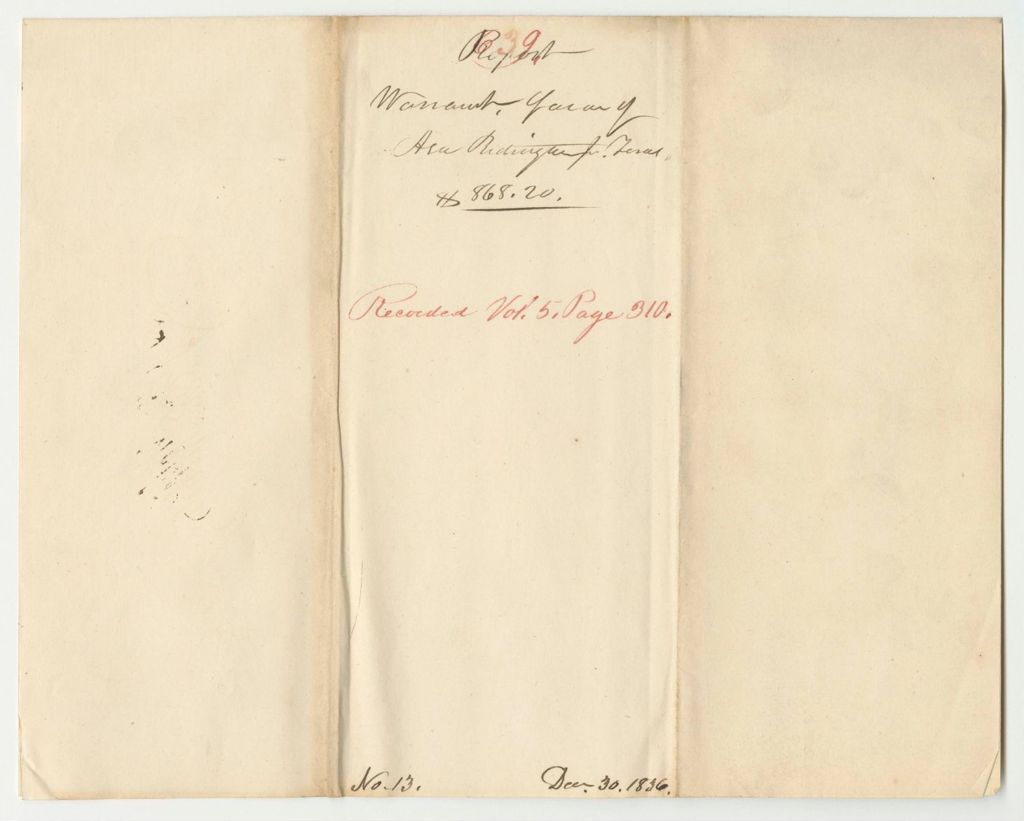 639.
Report
Warrant, favor of
Asa Redington Jr. Treas.
$868.20.
Recorded Vol. 5. Page 310.
No. 13.
Dec. 30. 1836.